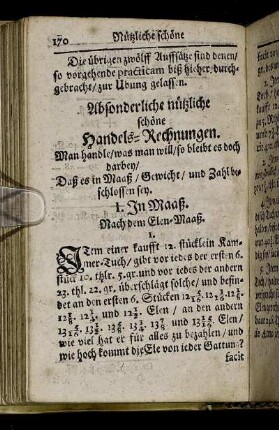 170 Nützliche schöne
Die übrigen zwölff Auffsätze sind denen/
so vorgehende practicam biß hieher/durch-
gebracht/zur Übung gelassen.
Absonderliche nützliche
schöne
Handels-Rechnungen.
Man handle/was man will/so bleibt es doch
darbey/
Daß es in Maaß/Gewicht/und Zahl be-
schlossen sey.
I. In Maaß.
Nach dem Elen-Maaß.
1.
ITem einer kaufft 12. stücklein Kam-
mer-Tuch/gibt vor iedes der ersten 6.
stück 10. thlr. 5. gr. und vor iedes der andern
23. thl. 22. gr. überschlägt solche/und befin-
det an den ersten 6. Stücken
Elen/an den andern
und Elen/
wie viel hat er für alles zu bezahlen/und
wie hoch kommt die Ele von ieder Gattung?
facit